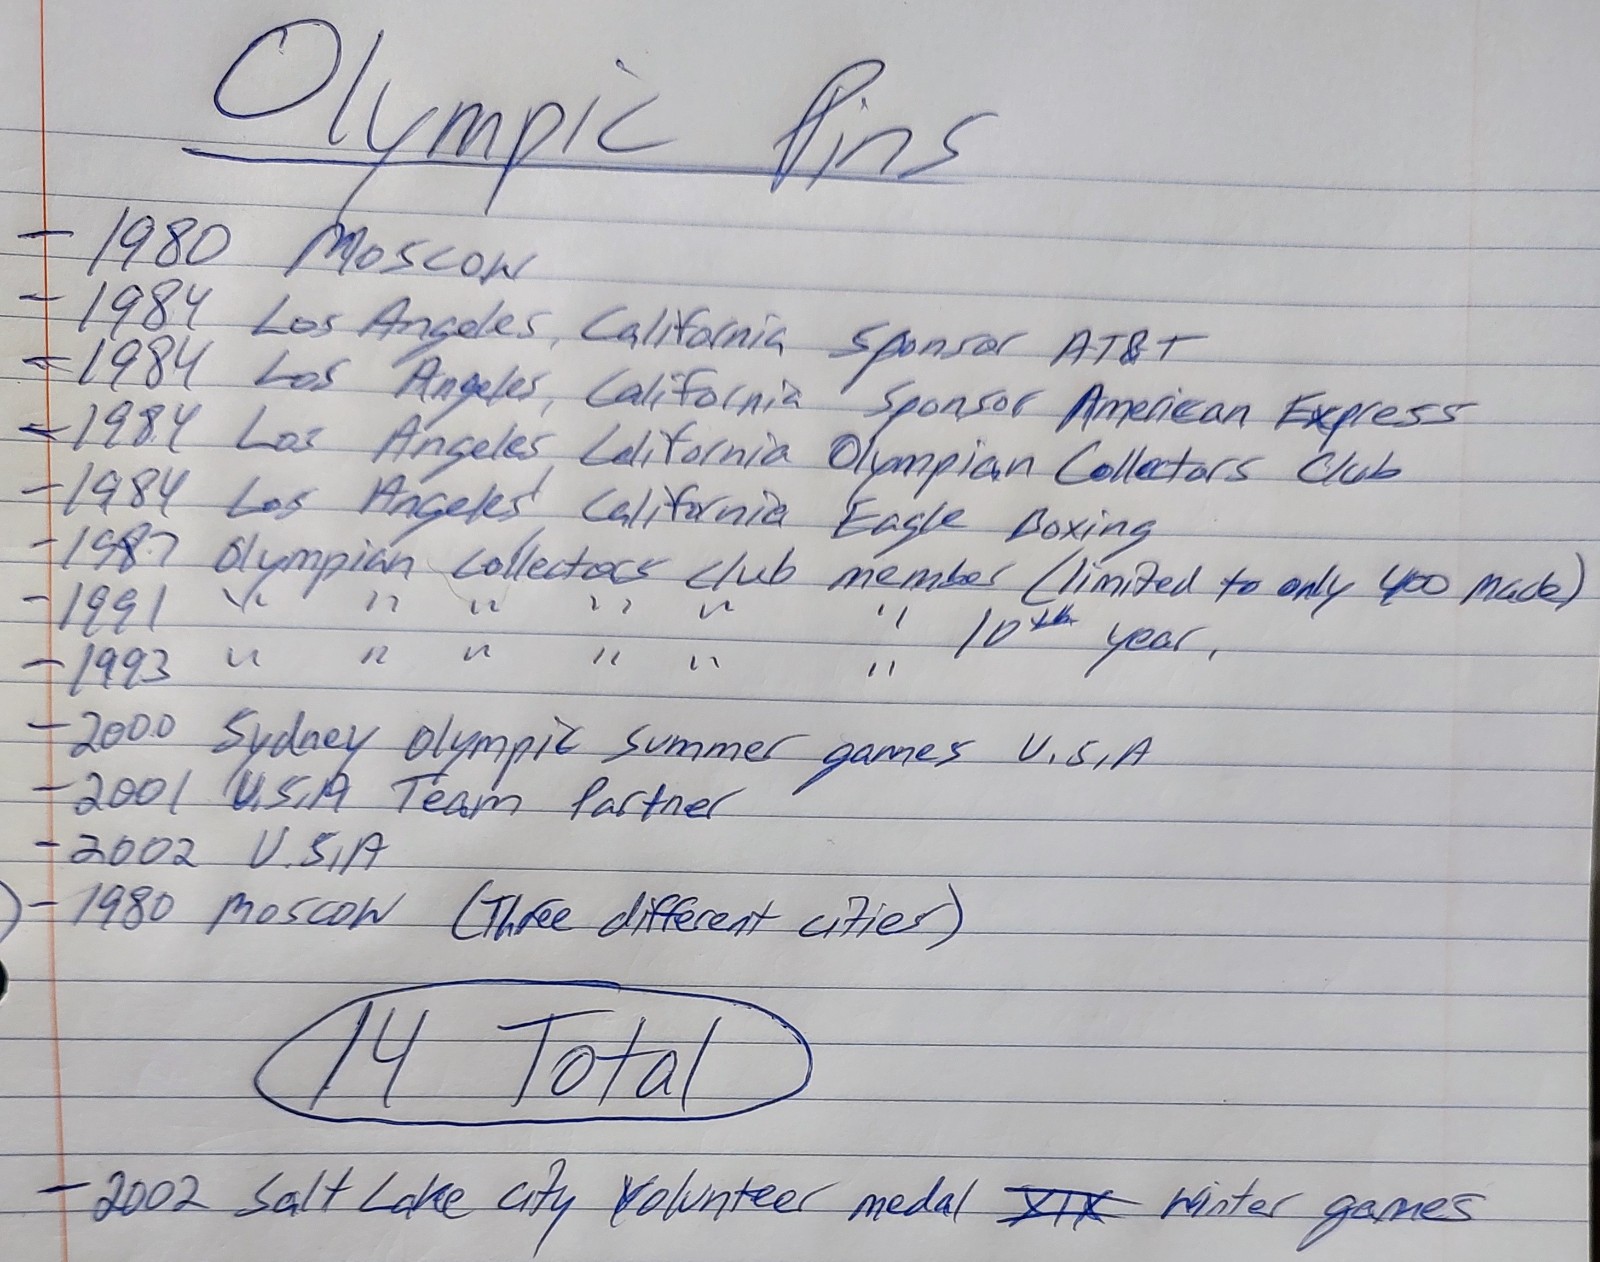 Olympic Pins
- 1980 Moscow
- 1984 Los Angeles, California Sponsor AT&T
- 1984 Los Angeles, California Sponsor American Express
- 1984 Los Angeles, California Olympian Collectors Club
- 1984 Los Angeles, California Eagle Boxing
- 1987 Olympian collectors club member (limited to only 400 made)
- 1991 " " " " " " 10th year.
- 1993 " " " " " "
- 2000 Sydney Olympic summer games U.S.A
- 2001 U.S.A Team Partner
- 2002 U.S.A
- 1980 Moscow (Three different cities)
14 Total
- 2002 Salt Lake city Volunteer medal XIX Winter games